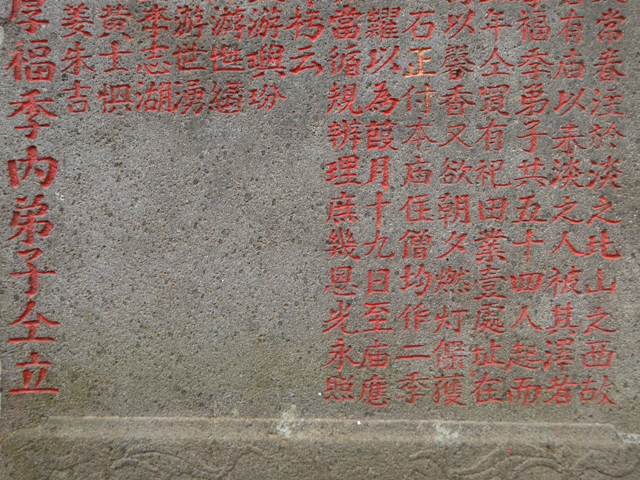 常眷注於淡之北山之西故
有庙以来淡之人被其澤者
福季弟子共五十四人起而
年仝買有祀田業壹處址在
以馨香又欲朝夕燃灯獲
石正付本庙住僧均作二季
以為葭月十九日至庙應
當循規辨理庶幾恩光永照
朽云
游興玢
游世
游世湧
李志湖
黃士惧
姜朱吉
厚福季内弟子仝立